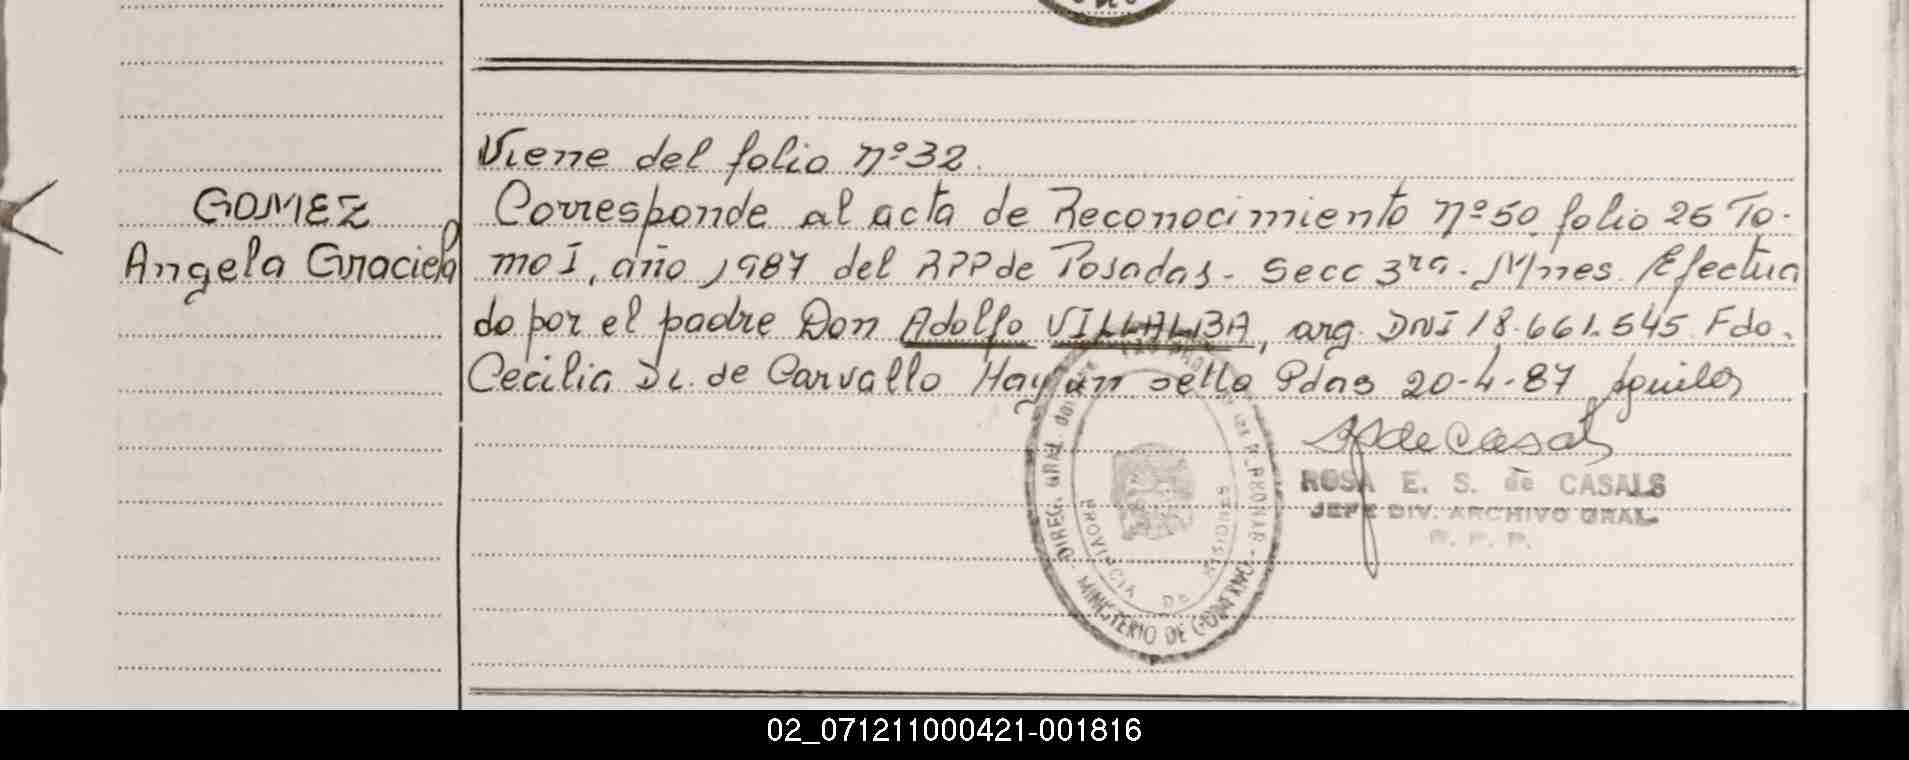 Viene del folio nº 32.
GOMEZ
Angela Graciela
Corresponde al acta de Reconocimiento nº 50 folio 25 To-
mo I, año 1987 del RPP de Posadas - Secc 3ra. Mnes. Efectua
do por el padre Don Adolfo VILLALBA, arg. DNI 18.661.545 Fdo.
Cecilia de Carvallo Hay un sello Pdas 20-4-87
de Casals
ROSA E. S. de CASALS
JEFE DIV. ARCHIVO GRAL.
R. P. P.
DIREC. GRAL.
MINISTERIO DE GOBIERNO
PROVINCIA DE MISIONES
02_071211000421-001816